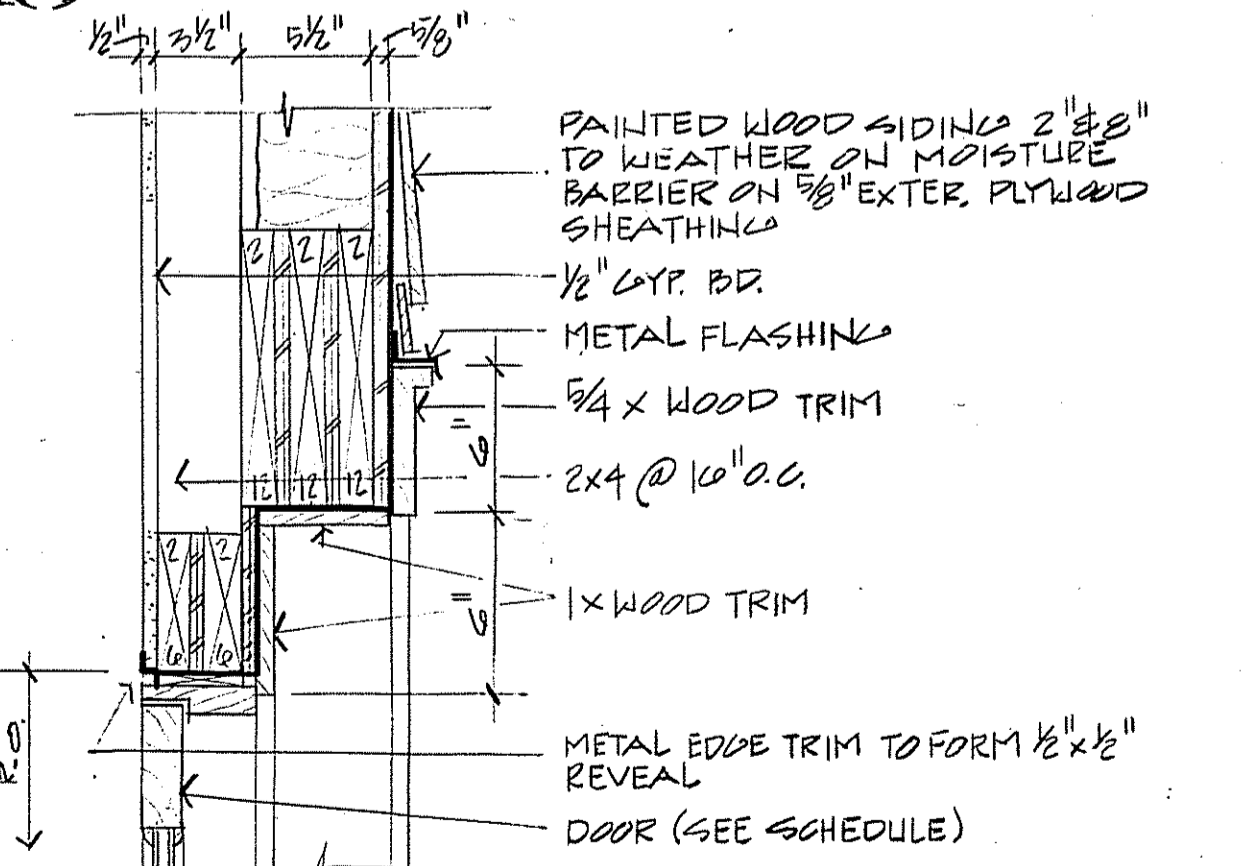 1/2" 3 1/2" 5 1/2" 5/8"
PAINTED WOOD SIDING 2" & 8"
TO WEATHER ON MOISTURE
BARRIER ON 5/8" EXTER. PLYWOOD
SHEATHING
1/2" GYP. BD.
METAL FLASHING
5/4 X WOOD TRIM
2X4 @ 16" O.C.
1X WOOD TRIM
METAL EDGE TRIM TO FORM 1/2" X 1/2"
REVEAL
DOOR (SEE SCHEDULE)
2 2 2
12 12 12
6"
2 2
6 6
6"
R.O.